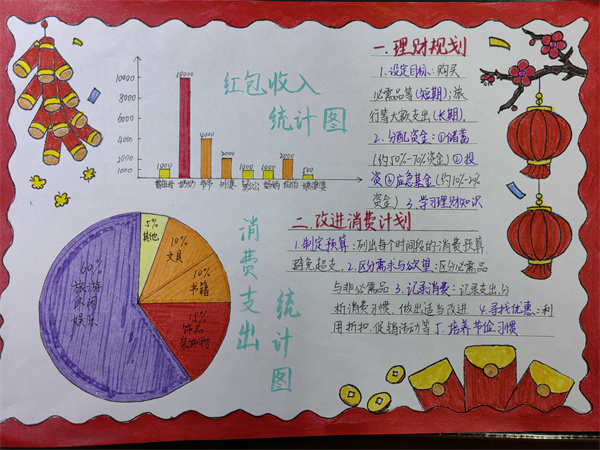 红包收入
统计图
10000
8000
6000
4000
2000
1000
1000
10000
4000
2000
1000
1000
2000
500
奶奶
爷爷
消费支出
统计图
5%
其他
10%
文具
10%
书籍
15%
饰品
装饰物
60%
旅游
休闲
娱乐
一.理财规划
1.设定目标:购买
必需品等(短期);旅
行等大额支出(长期)。
2.分配资金:①储蓄
(约50%-70%资金)②投
资③应急基金(约10%-2%
资金) 3.学习理财知识
二.改进消费计划
1.制定预算:列出每个时间段的消费预算,
避免超支.2.区分需求与欲望:区分必需品
与非必需品 3.记录消费:记录支出,分
析消费习惯,做出适当改进 4.寻找优惠:利
用折扣、促销活动等 5.培养节俭习惯